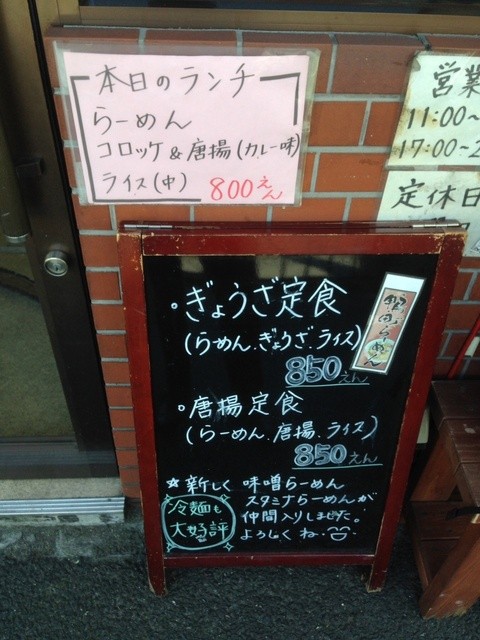 本日のランチ
らーめん
コロッケ & 唐揚(カレー味)
ライス(中) 800えん
営業
11:00~
17:00~2
定休日
・ぎょうざ定食
(らーめん、ぎょうざ、ライス)
850えん
・唐揚定食
(らーめん、唐揚、ライス)
850えん
☆新しく 味噌らーめん
スタミナらーめんが
仲間入りしました!
よろしくね
冷麺も
大好評
らーめん